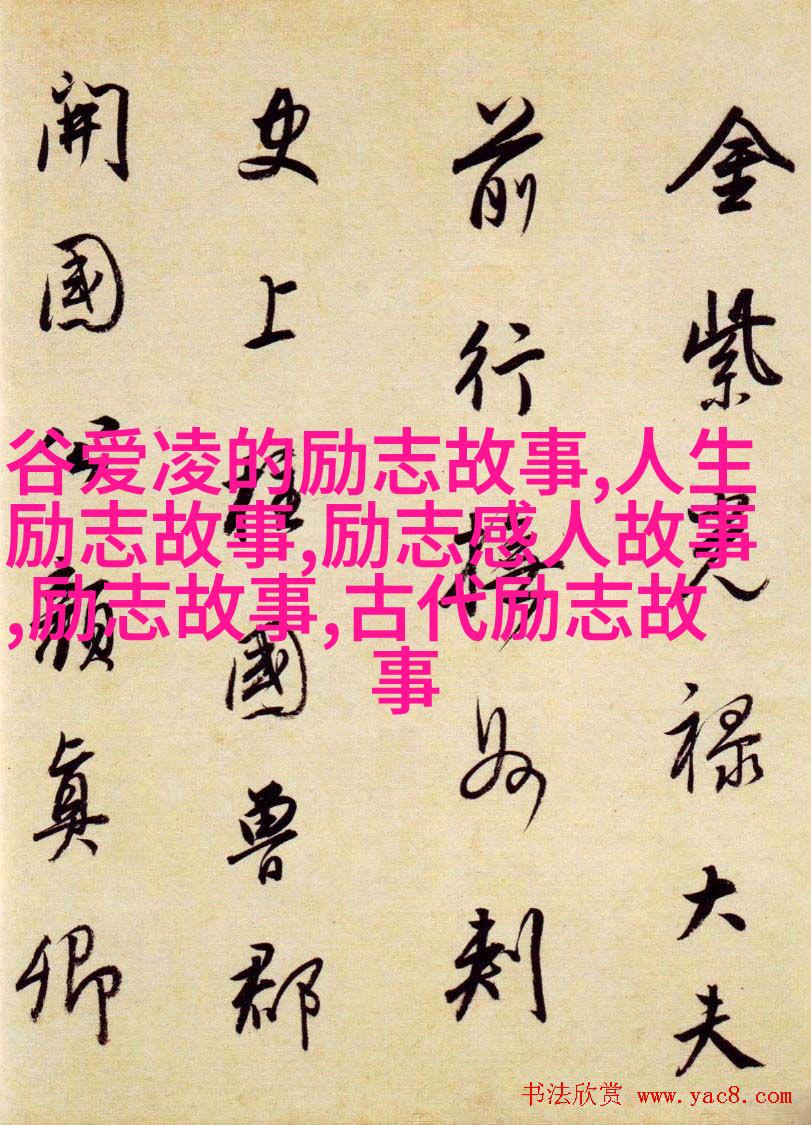 金紫光禄大夫
前行撫州刺
史上柱國魯郡
開國公顏真卿
谷爱凌的励志故事,人生
励志故事,励志感人故事
,励志故事,古代励志故
事
书法欣赏 www.yac8.com